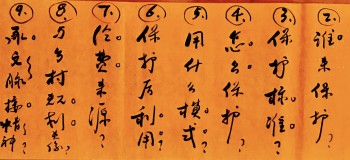 ②谁来保护?
③保护标准?
④怎么保护?
⑤用什么模式?
⑥保护后利用?
⑦经费来源?
⑧与乡村规划关系
⑨